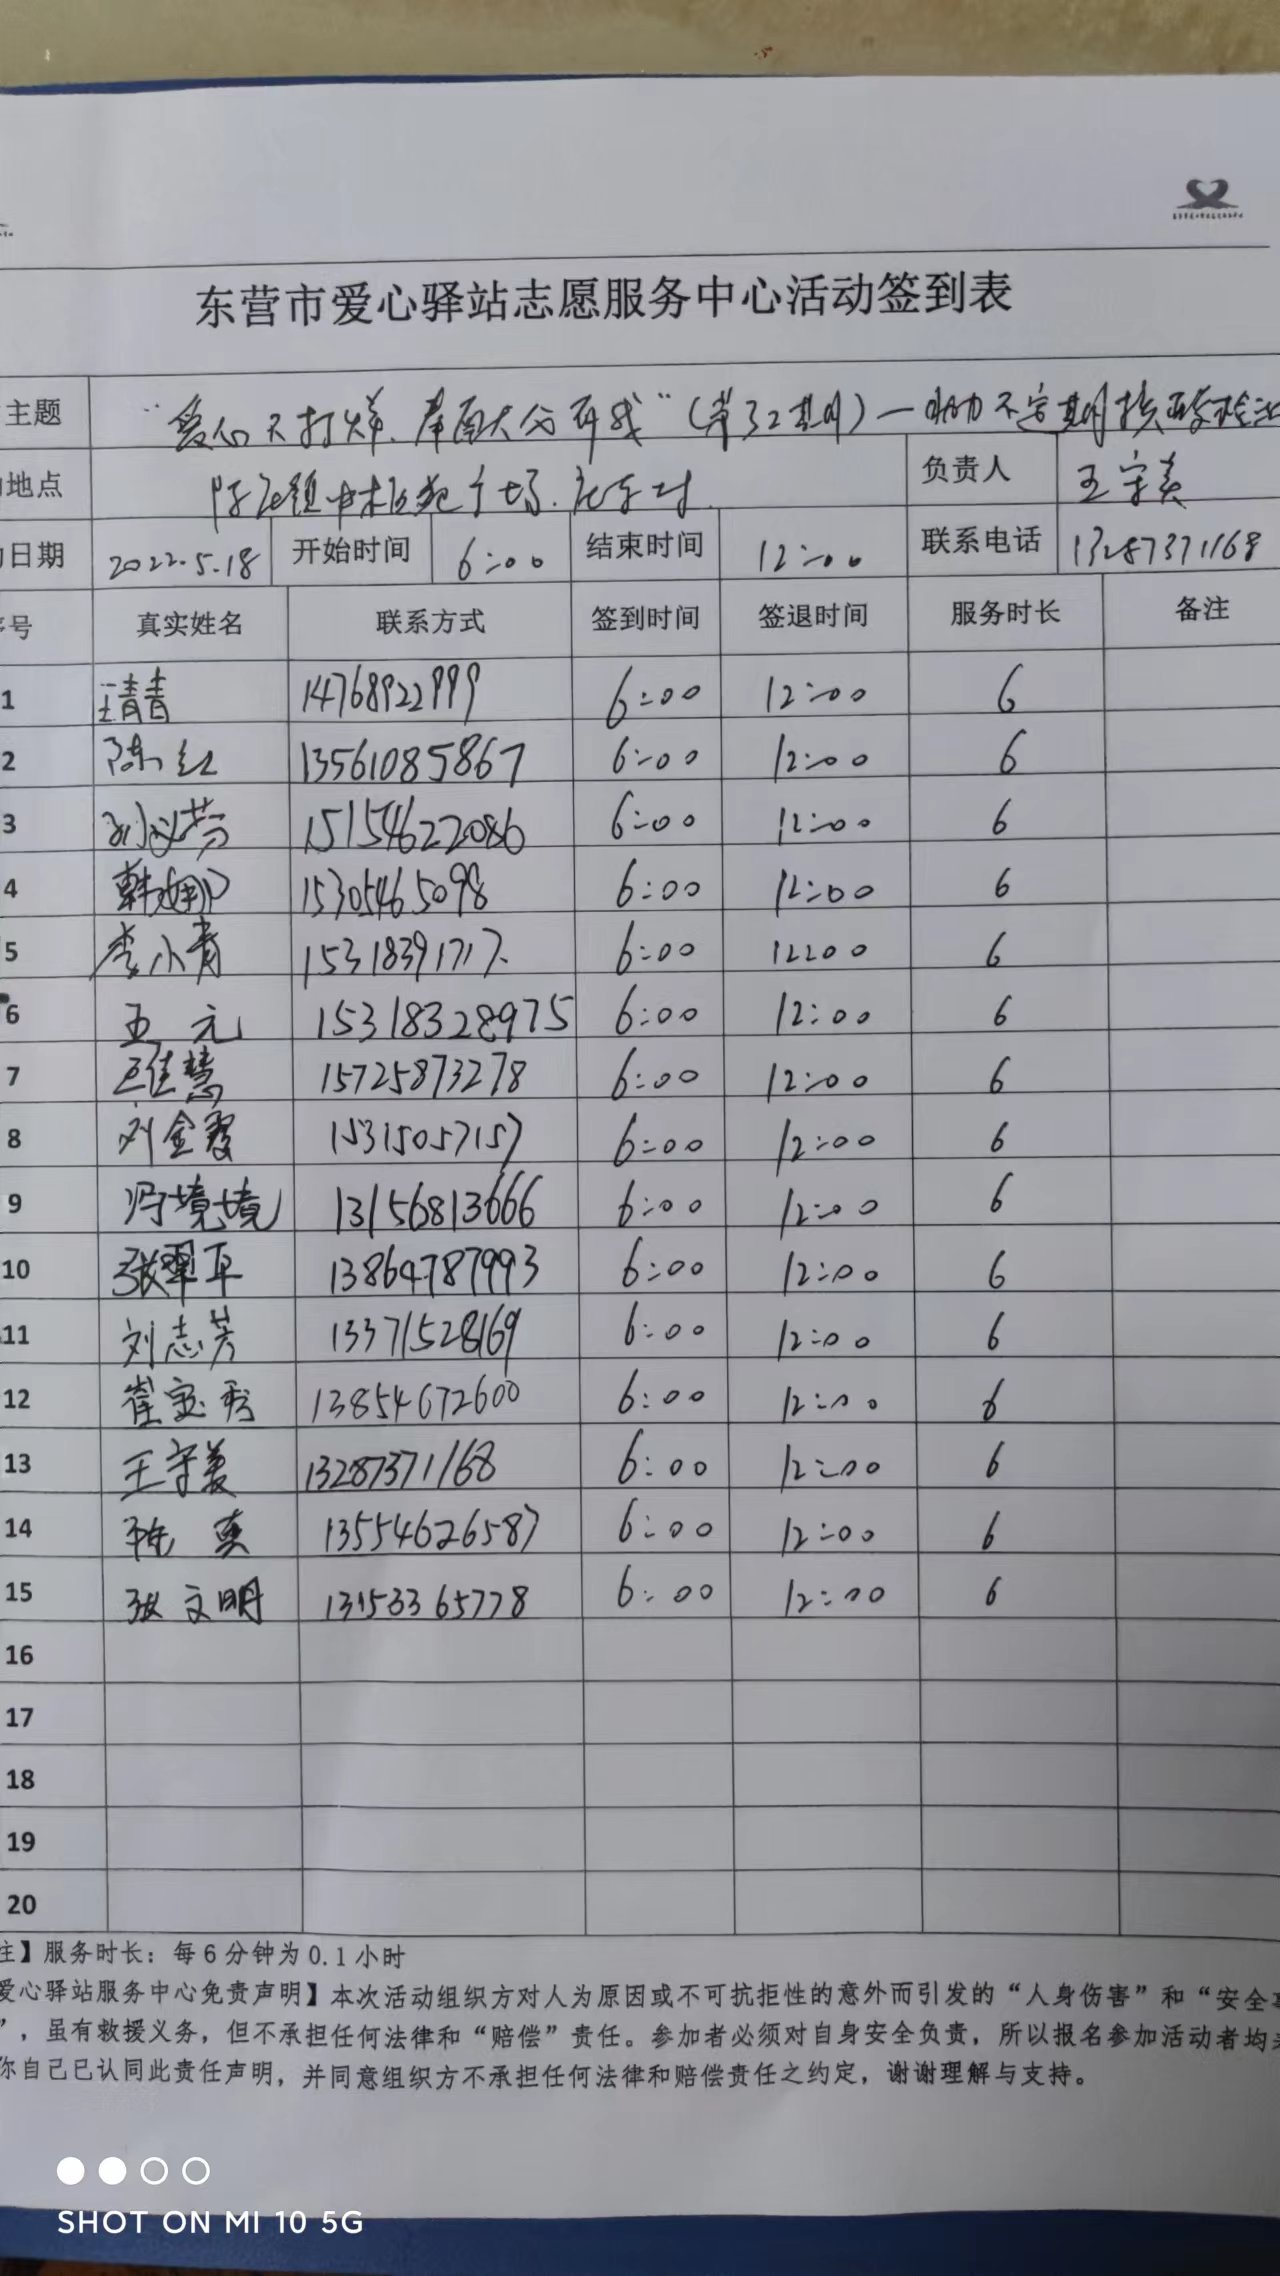 东营市爱心驿站志愿服务中心活动签到表
主题 "爱心不打烊、" (第32期)一助力不定期核酸检测
地点 负责人 王守美
日期 2022.5.18 开始时间 6:00 结束时间 12:00 联系电话 13287371168
序号 真实姓名 联系方式 签到时间 签退时间 服务时长 备注
1 王青青 14768922999 6:00 12:00 6
2 陈红 13561085867 6:00 12:00 6
3 刘义芳 15154622086 6:00 12:00 6
4 韩娜 15305465098 6:00 12:00 6
5 李小青 15318391717 6:00 12:00 6
6 王元 15318328975 6:00 12:00 6
7 王佳慧 15725873278 6:00 12:00 6
8 刘金霞 15315057157 6:00 12:00 6
9 冯境境 13156813666 6:00 12:00 6
10 张翠平 13864787993 6:00 12:00 6
11 刘志芳 13371528169 6:00 12:00 6
12 崔宝秀 13854672600 6:00 12:00 6
13 王守美 13287371168 6:00 12:00 6
14 13554626587 6:00 12:00 6
15 张文明 13153365778 6:00 12:00 6
16
17
18
19
20
注】服务时长：每6分钟为0.1小时
爱心驿站服务中心免责声明】本次活动组织方对人为原因或不可抗拒性的意外而引发的“人身伤害”和“安全事
”，虽有救援义务，但不承担任何法律和“赔偿”责任。参加者必须对自身安全负责，所以报名参加活动者均
你自己已认同此责任声明，并同意组织方不承担任何法律和赔偿责任之约定，谢谢理解与支持。
SHOT ON MI 10 5G